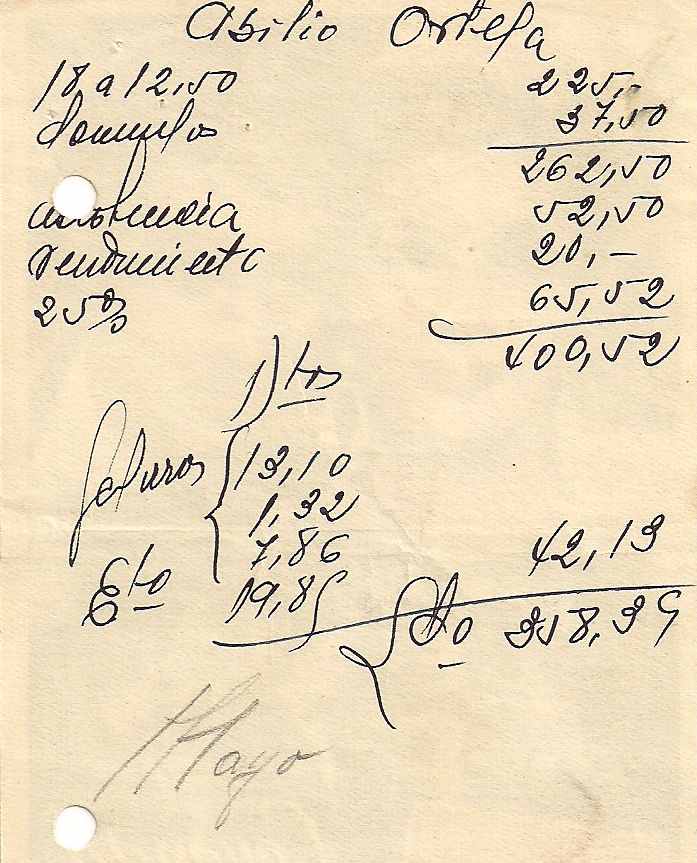 Abilio Ortega
18 a 12,50 225,-
domingos 37,50
262,50
asistencia 52,50
rendimiento 20,-
25% 65,52
400,52
Dtos
Seguros 13,10
1,32
7,86 42,13
Eto 19,85 Ldo 358,39
Mayo